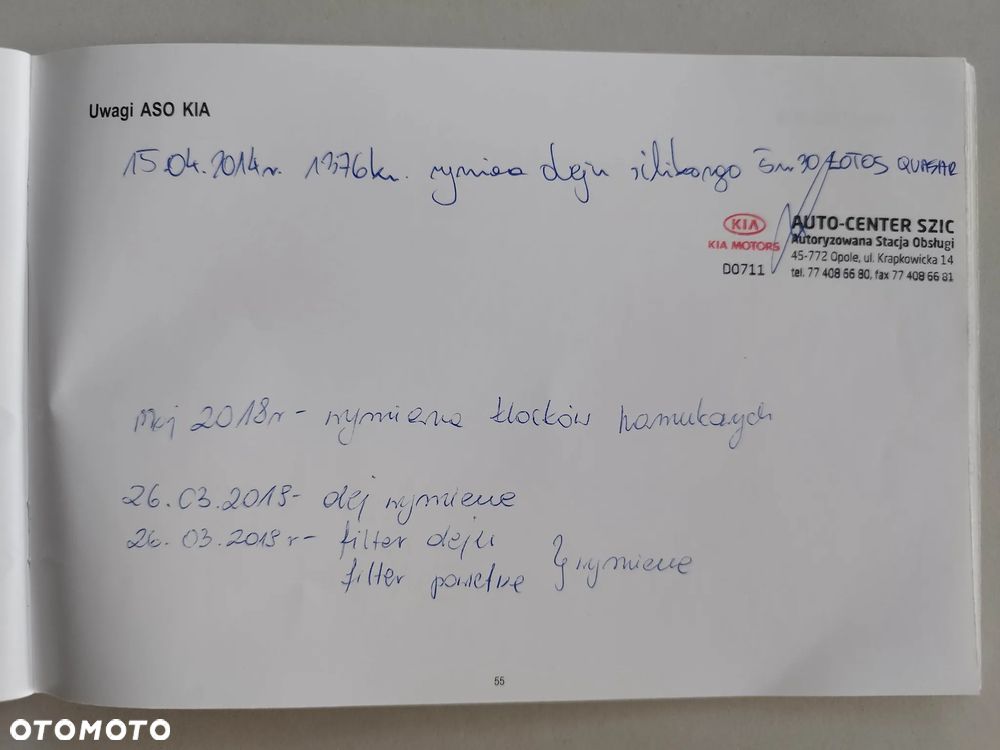 Uwagi ASO KIA
15.04.2014r. 1376km. wymiana oleju silnikowego 5w30 LOTOS QUASAR
KIA
KIA MOTORS
D0711
AUTO-CENTER SZIC
Autoryzowana Stacja Obsługi
45-772 Opole, ul. Krapkowicka 14
tel. 77 408 66 80, fax 77 408 66 81
Maj 2018r - wymiana klocków hamulcowych
26.03.2019 - olej wymiana
26.03.2019r - filter oleju
filter powietrza } wymiana
55
OTOMOTO